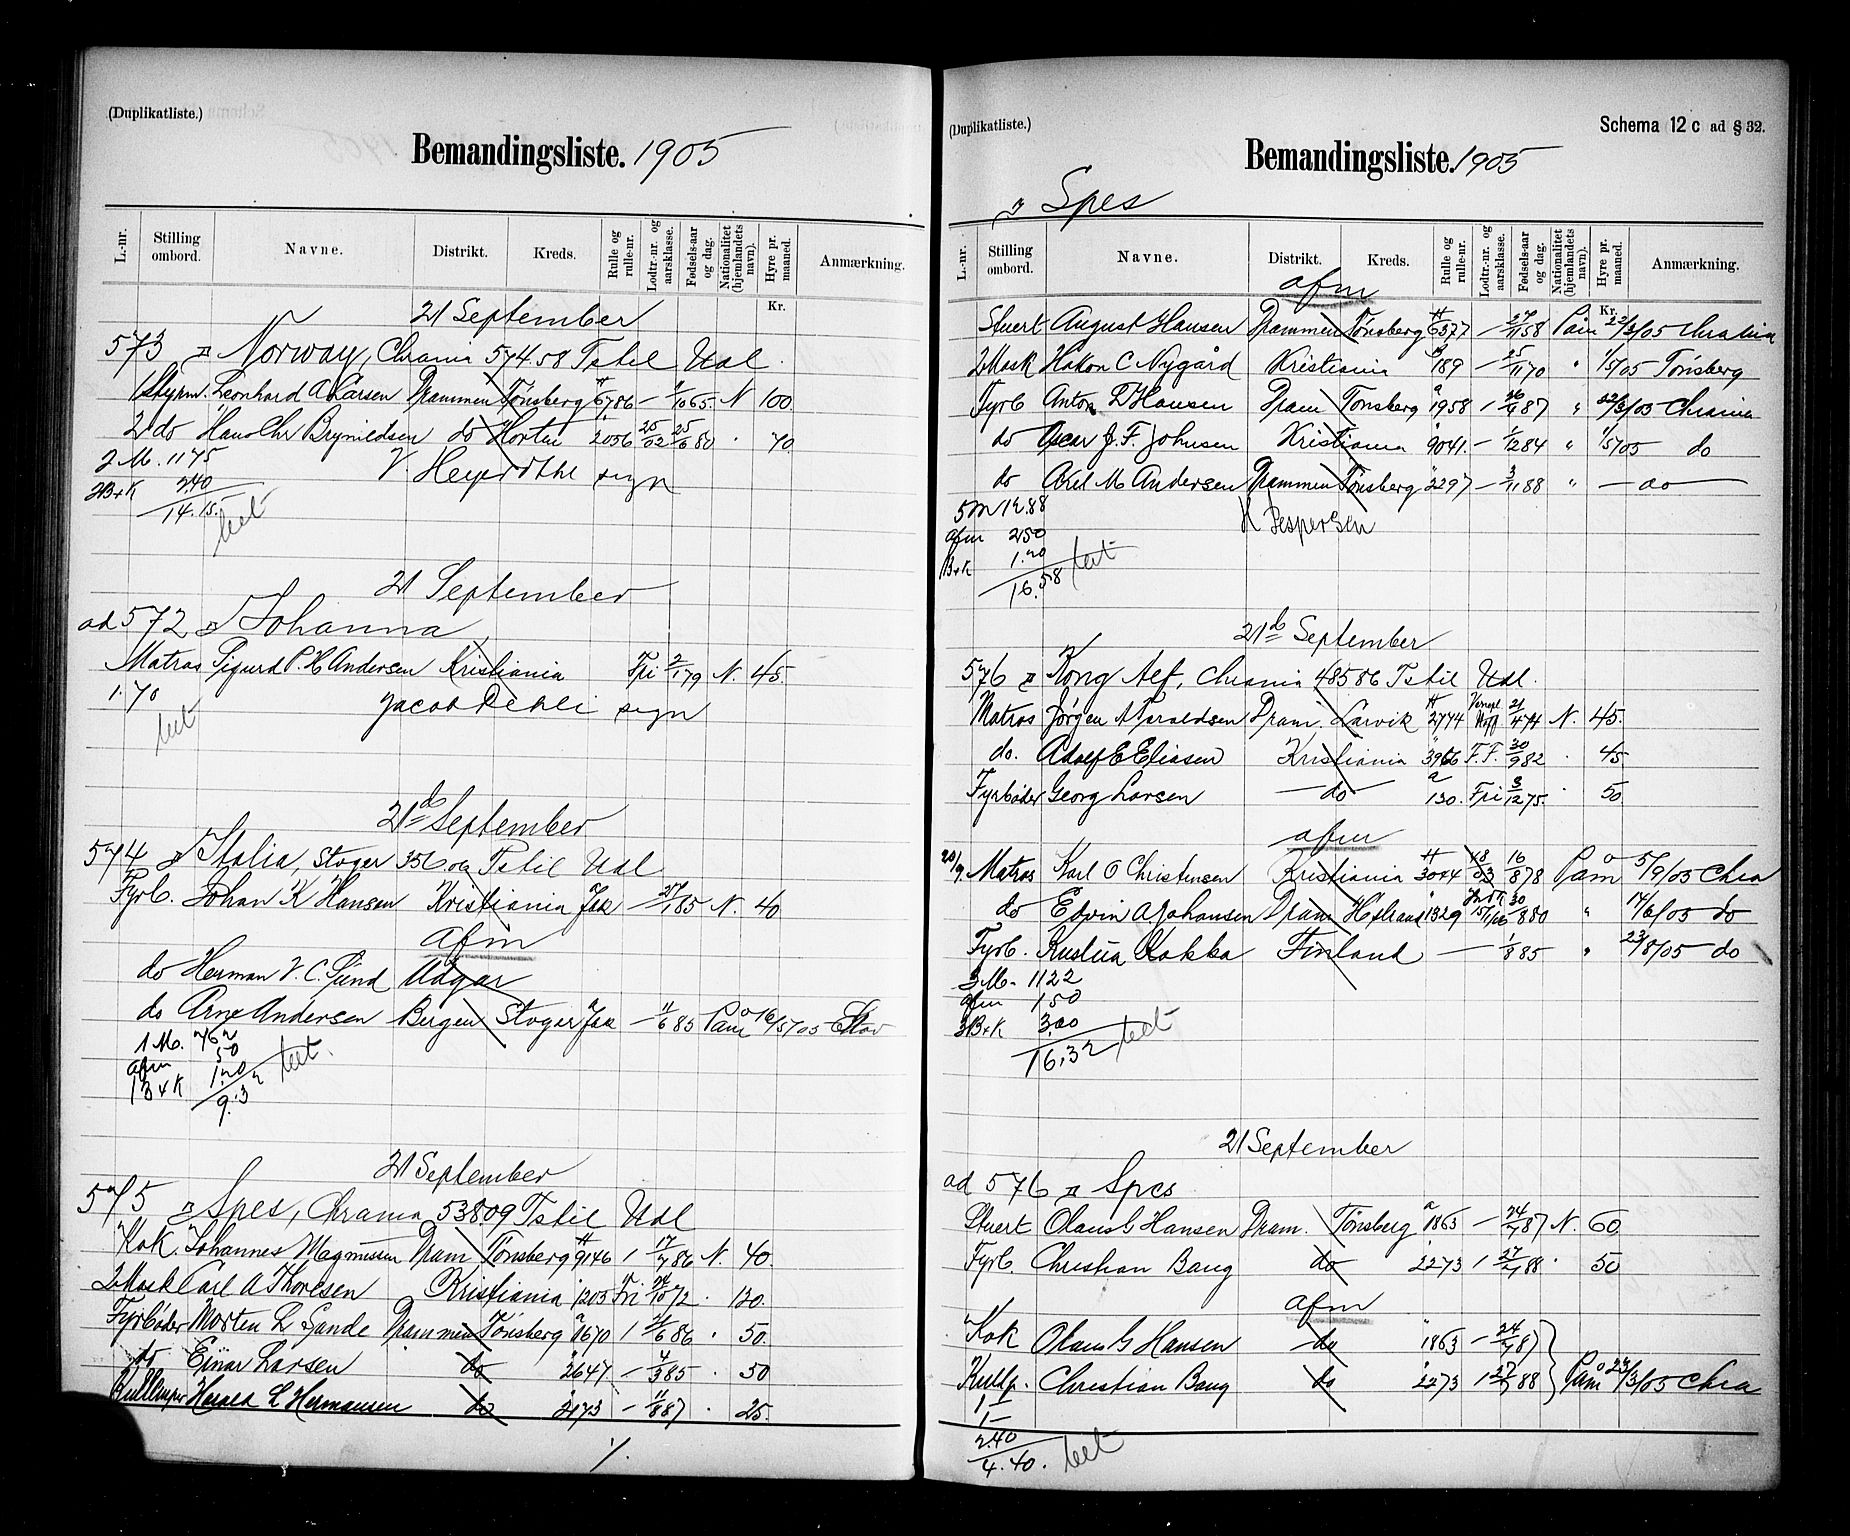 (Duplikatliste.)
Bemandingsliste. 1905
L.-nr. Stilling ombord. Navne. Distrikt. Kreds. Rulle og rulle-nr. Lodtr.-nr. og aarsklasse. Fødsels-aar og dag. Nationalitet (hjemlandets navn). Hyre pr. maaned. Anmærkning.
Kr.
21 September
573 Norway, Chrania 574.58 Tstil Udl.
1 Styrm. Leonhard A Larsen Drammen Tønsberg 6786 — 65. N 100
2 do Hans Chr Brynildsen do Horten 2056 25/02 25/6 80 70
2 M. 11 75
2B+K 2.40
14.15
V. Heyerdthl sign
21 September
ad 572 Johanna
Matros Sigurd P. H Andersen Kristiania Fri 2/1 79 N. 45.
1.70
Jacob Dehli sign
21de September
574 Italia, Stvger 356.09 Tstil Udl
Fyrb. Johan K Hansen Kristiania — 85 N. 40
afm
do Herman V. C. Adgar
do Arne Andersen Bergen Stvger — 11/6 85 Paam 16/5/05 Stav
1 M.
afm 50
1 B+K 1.20
9.32
21 September
575 Spes, Chrania 53809 Tstil Udl
Kok. Johannes Magnussen Dram Tønsberg 9146 1 17/7 86 N. 40.
2 Mask Carl A Thoresen Kristiania 1203 Fri 24/10 72 . 120.
Fyrbøder Morten L Sande Drammen Tønsberg 1670 1 21/6 86 . 50.
do Einar Larsen do 2647 — 4/3 85 . 50
Kullemper Harald L Hermansen do 2173 — 11/8 87 . 25.
%.
(Duplikatliste.)
Schema 12 c ad § 32.
Bemandingsliste. 1905
Spes
L.-nr. Stilling ombord. Navne. Distrikt. Kreds. Rulle og rulle-nr. Lodtr.-nr. og aarsklasse. Fødsels-aar og dag. Nationalitet (hjemlandets navn). Hyre pr. maaned. Anmærkning.
Kr.
afm
Stuert August Hansen Drammen Tønsberg 6377 — 27/11 58 Paam 22/3/05 Chrania
2 Mask Hakon C Nygård Kristiania 189 — 25/11 70 " 1/5/05 Tønsberg
Fyrb Anton D Hansen Dram Tønsberg 1958 1 26/4 87 " 22/3/05 Chrania
do Oscar J. F. Johnsen Kristiania 9041. — 1/12 84 " 1/5/05 do
do Axel M Andersen Drammen Tønsberg 2297 — 3/11 88 " — do —
5 M 12.88
afm 2.50
B+K 1.20
16.58
K Jespersen
21de September
576 Kong Alf, Chrania 485 86 Tstil Udl.
Matros Jørgen A Taraldsen Dram. Larvik 2774 21/4 74 N. 45.
do. Adolf E Eliasen Kristiania 3966 F.F. 30/9 82 . 45
Fyrbøder Georg Larsen — do 130. Fri 3/12 75. . 50
afm
20/9 Matros Karl O Christensen Kristiania 3044 48/03 16/8 78 Paam 5/9/05 Chra
do Edvin A Johansen Dram Holmestrand 1329 30/8 80 " 14/6/05 do
Fyrb. Kustaa Kokko Finland — 1/8 85 " 23/8/05 do
3 M. 11 22
afm 1 50
3B+K 3.00
16.32
21 September
ad 576 Spes
Stuert Olaus G Hansen Dram. Tønsberg 1863 — 24/7 87 N. 60
Fyrb. Christian Baug do 2273 1 27/7 88 . 50
afm
Kok Olaus G Hansen do 1863 — 24/7 87
Kullp. Christian Baug do 2273 1 27/7 88 Paam 23/3/05 Chra
1 I
1 —
2.40
4.40.